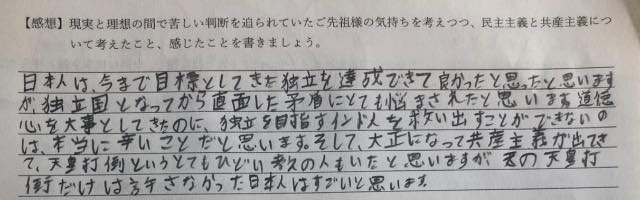 【感想】現実と理想の間で苦しい判断を迫られていたご先祖様の気持ちを考えつつ、民主主義と共産主義につ
いて考えたこと、感じたことを書きましょう。
日本人は、今まで目標としてきた独立を達成できて良かったと思ったと思います
が、独立国となってから直面した矛盾にとても悩まされたと思います。道徳
心を大事としてきたのに、独立を目指すインド人を救い出すことができないの
は、本当に辛いことだと思います。そして、大正になって共産主義が出てき
て、天皇打倒というとてもひどい考えの人もいたと思いますが、その天皇打
倒だけは許さなかった日本人はすごいと思います。